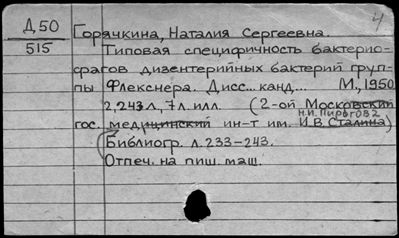 4
Д50 Горячкина, Наталия Сергеевна.
515 Типовая специфичность бактерио-
фагов дизентерийных бактерий груп-
пы Флекснера. Дисс... канд... М., 1950
2,243 л, 7 л. илл. (2-ой Московский
Н.И. Пирогова
гос. медицинский ин-т им. И.В. Сталина)
Библиогр. л. 233-243.
Отпеч. на пиш. маш.